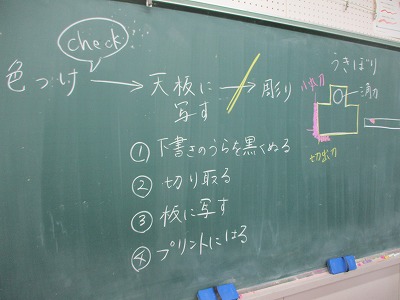 check
色つけ → 天板に写す → 彫り
① 下書きのうらを黒くぬる
② 切り取る
③ 板に写す
④ プリントにはる
うきぼり
小出刀
丸刀
切出刀